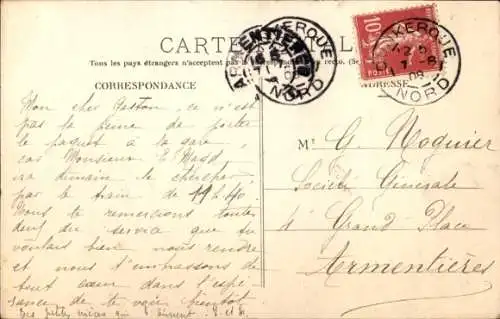 CARTE POSTALE
Tous les pays étrangers n'acceptent pas la recto,
CORRESPONDANCE
ADRESSE
ARMENTIERES NORD
DUNKERQUE NORD
DUNKERQUE NORD
10
POSTES
Mon cher Gaston, ce n'est
pas la peine de porter
le paquet à la gare,
car Monsieur E.
ira demain le chercher
par le train de 11h40.
Nous te remercions toutes
deux du service que tu
voulais bien nous rendre
et nous t'embrassons de
tout cœur dans l'espé-
rance de te voir bientôt
Tes petites nièces qui t'aiment.
Mr G. Noguier
Société Générale
4 Grand Place
Armentières